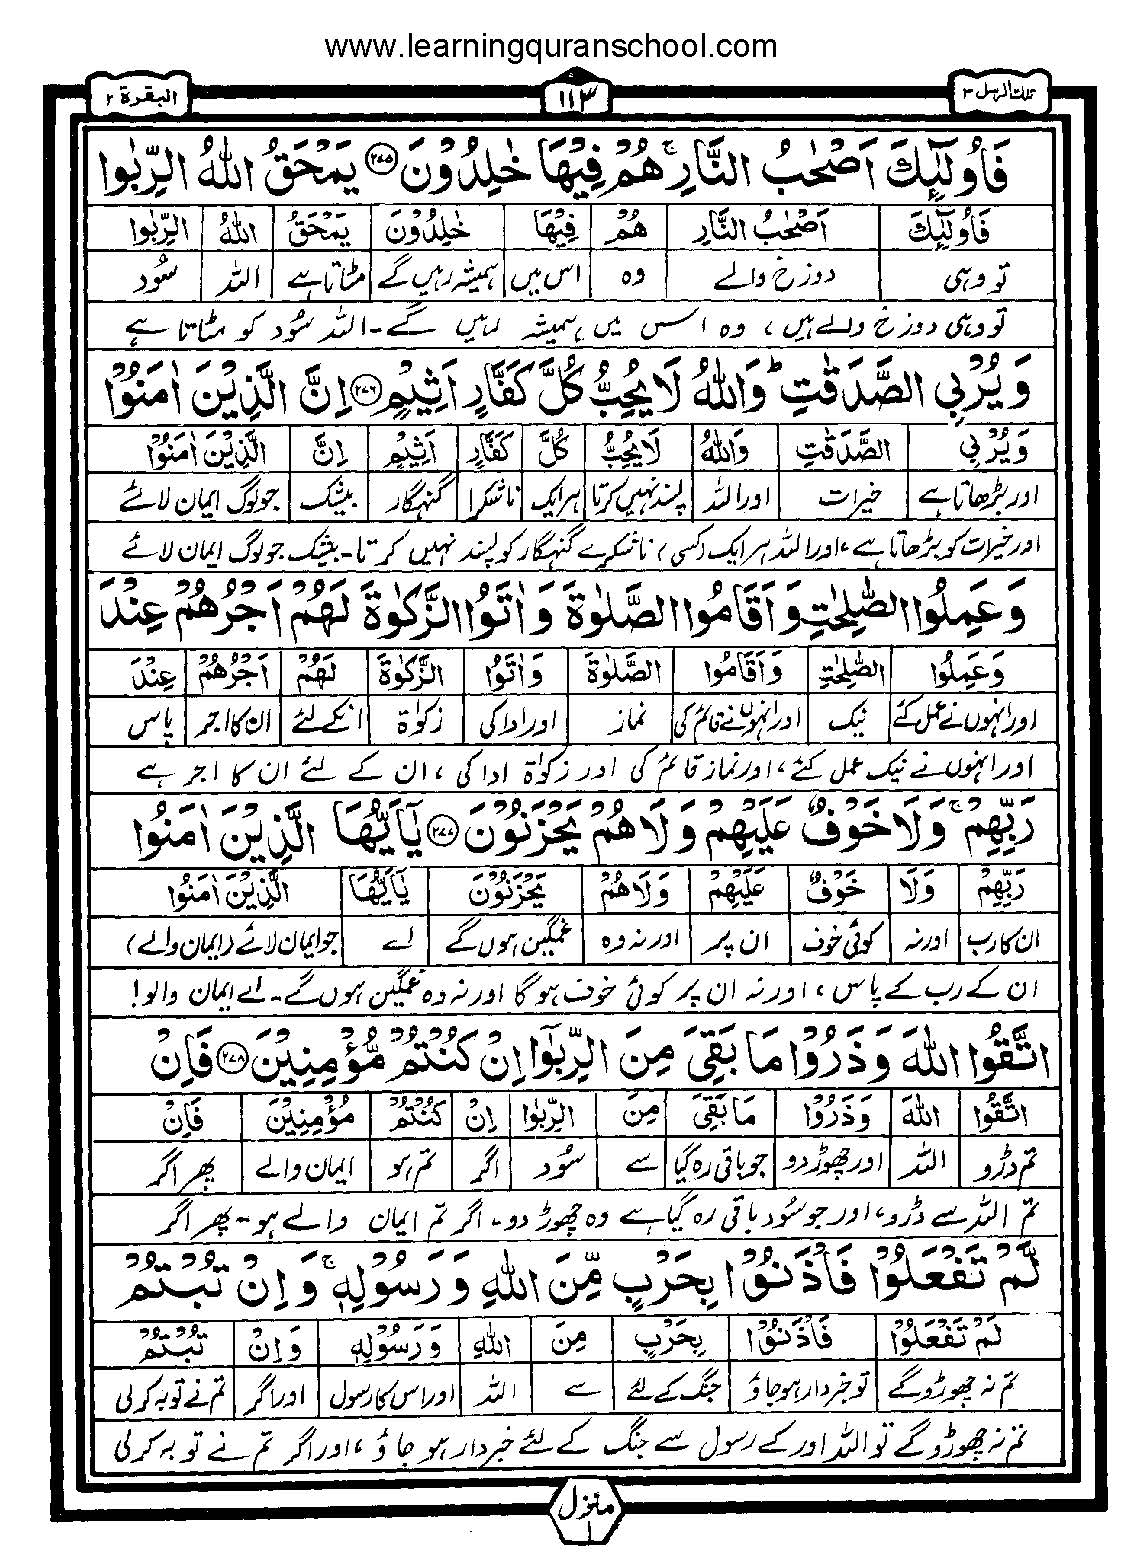 www.learningquranschool.com
تلك الرسل ٣ ١١٣ البقرة ٢
فَاُولٰٓئِكَ اَصْحٰبُ النَّارِ ۚ هُمْ فِيْهَا خٰلِدُوْنَ ﴿۲۷۵﴾ يَمْحَقُ اللّٰهُ الرِّبٰوا
فَاُولٰٓئِكَ اَصْحٰبُ النَّارِ هُمْ فِيْهَا خٰلِدُوْنَ يَمْحَقُ اللّٰهُ الرِّبٰوا
تو وہی دوزخ والے وہ اس میں ہمیشہ رہیں گے مٹاتا ہے اللہ سُود
تو وہی دوزخ والے ہیں، وہ اس میں ہمیشہ رہیں گے۔ اللہ سُود کو مٹاتا ہے
وَيُرْبِي الصَّدَقٰتِ ؕ وَاللّٰهُ لَا يُحِبُّ كُلَّ كَفَّارٍ اَثِيْمٍ ﴿۲۷۶﴾ اِنَّ الَّذِيْنَ اٰمَنُوْا
وَيُرْبِي الصَّدَقٰتِ وَاللّٰهُ لَا يُحِبُّ كُلَّ كَفَّارٍ اَثِيْمٍ اِنَّ الَّذِيْنَ اٰمَنُوْا
اور بڑھاتا ہے خیرات اور اللہ پسند نہیں کرتا ہر ایک ناشکرا گنہگار بیشک جو لوگ ایمان لائے
اور خیرات کو بڑھاتا ہے، اور اللہ ہر ایک (کسی) ناشکرے گنہگار کو پسند نہیں کرتا۔ بیشک جو لوگ ایمان لائے
وَعَمِلُوا الصّٰلِحٰتِ وَاَقَامُوا الصَّلٰوةَ وَاٰتَوُا الزَّكٰوةَ لَهُمْ اَجْرُهُمْ عِنْدَ
وَعَمِلُوا الصّٰلِحٰتِ وَاَقَامُوا الصَّلٰوةَ وَاٰتَوُا الزَّكٰوةَ لَهُمْ اَجْرُهُمْ عِنْدَ
اور انہوں نے عمل کئے نیک اور انہوں نے قائم کی نماز اور ادا کی زکوٰۃ انکے لئے ان کا اجر پاس
اور انہوں نے نیک عمل کئے، اور نماز قائم کی اور زکوٰۃ ادا کی، ان کے لئے ان کا اجر ہے
رَبِّهِمْ ۚ وَلَا خَوْفٌ عَلَيْهِمْ وَلَا هُمْ يَحْزَنُوْنَ ﴿۲۷۷﴾ يٰٓاَيُّهَا الَّذِيْنَ اٰمَنُوْا
رَبِّهِمْ وَلَا خَوْفٌ عَلَيْهِمْ وَلَا هُمْ يَحْزَنُوْنَ يٰٓاَيُّهَا الَّذِيْنَ اٰمَنُوْا
ان کا رب اور نہ کوئی خوف ان پر اور نہ وہ غمگین ہوں گے اے جو ایمان لائے (ایمان والے)
ان کے رب کے پاس، اور نہ ان پر کوئی خوف ہوگا اور نہ وہ غمگین ہوں گے۔ اے ایمان والو!
اتَّقُوا اللّٰهَ وَذَرُوْا مَا بَقِيَ مِنَ الرِّبٰٓوا اِنْ كُنْتُمْ مُّؤْمِنِيْنَ ﴿۲۷۸﴾ فَاِنْ
اتَّقُوا اللّٰهَ وَذَرُوْا مَا بَقِيَ مِنَ الرِّبٰوا اِنْ كُنْتُمْ مُؤْمِنِيْنَ فَاِنْ
تم ڈرو اللہ اور چھوڑ دو جو باقی رہ گیا سے سُود اگر تم ہو ایمان والے پھر اگر
تم اللہ سے ڈرو، اور جو سُود باقی رہ گیا ہے وہ چھوڑ دو۔ اگر تم ایمان والے ہو۔ پھر اگر
لَّمْ تَفْعَلُوْا فَاْذَنُوْا بِحَرْبٍ مِّنَ اللّٰهِ وَرَسُوْلِهٖ ۚ وَاِنْ تُبْتُمْ
لَمْ تَفْعَلُوْا فَاْذَنُوْا بِحَرْبٍ مِنَ اللّٰهِ وَرَسُوْلِهٖ وَاِنْ تُبْتُمْ
تم نہ چھوڑو گے تو خبردار ہو جاؤ جنگ کے لئے سے اللہ اور اس کا رسول اور اگر تم نے توبہ کر لی
تم نہ چھوڑو گے تو اللہ اور کے رسول سے جنگ کے لئے خبردار ہو جاؤ، اور اگر تم نے توبہ کر لی
منزل ١